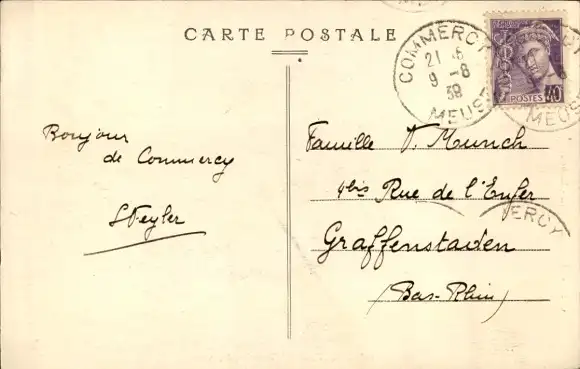 CARTE POSTALE
COMMERCY
21 
9 -8
39
MEUSE
POSTES
40
MEUSE
Bonjour
de Commercy
Famille V. Munch
4bis Rue de l'Enfer
ERCY
Graffenstaden
(Bas-Rhin)